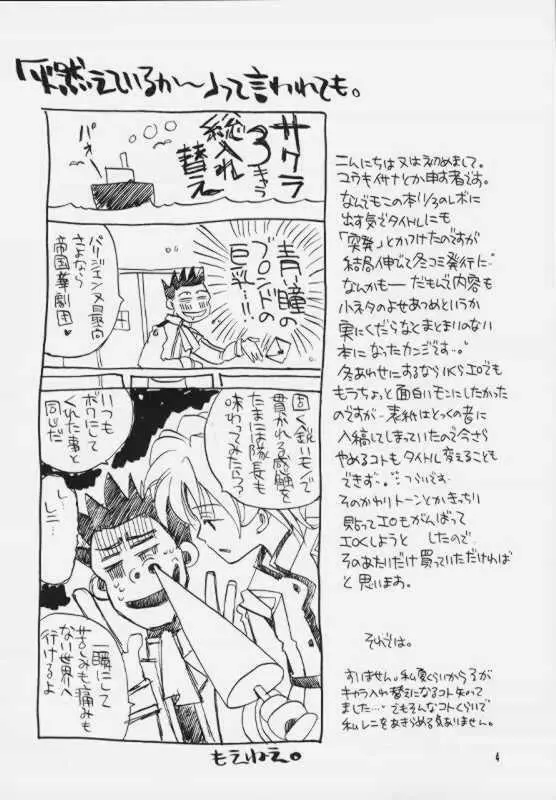 「燃えているか〜」って言われても。
サクラ
3キャラ
総入れ
替え
パオー
青い瞳の
ブロンドの
巨乳…!!
パリジェンヌ最高
さよなら
帝国華劇団
固く鋭いモンで
貫かれる感触を
たまには隊長も
味わってみたら?
いつも
ボクにして
くれた事と
同じだ
レニ…
し…
一瞬にして
苦しみも痛みも
ない世界へ
行けるよ
もえねえ。
こんにちは又は初めまして。
コウキイサナとか申す者です。
なんでもこの本11/3のレボに
出す気でタイトルにも
「突発」とかつけたのですが
結局伸びて冬コミ発行に
なんかもーだもんで内容も
小ネタのよせあつめというか
実にくだらなくまとまりのない
本になったカンジです…。
冬あわせにするならIKらエロでも
もうちょっと面白いモンにしたかった
のですが、表紙はとっくの昔に
入稿してしまっていたので今さら
やめるコトもタイトル変えることも
できず…つらいです。
そのかわりトーンとかきっちり
貼ってエロもがんばって
エロくしようと したので、
そのあたいだけ買っていただければ
と思います。
それでは。
すいません。私夏くらいから3が
キャラ入れ替えになるコト知って
ました…でもそんなコトくらいで
私レニをあきらめる気ありません。
4